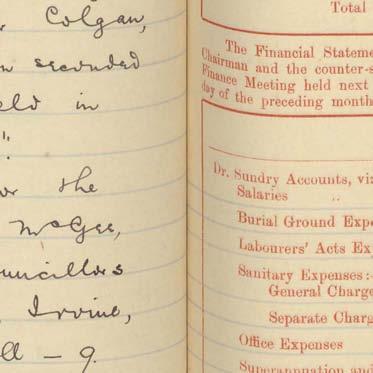 Colgan,
seconded
held in
the
McGee,
Councillors
Irvine,
- 9.
Total
The Financial Stateme
Chairman and the counter-s
Finance Meeting held next
day of the preceding month
Dr. Sundry Accounts, viz
Salaries
Burial Ground Expe
Labourers' Acts Ex
Sanitary Expenses:-
General Charge
Separate Charg
Office Expenses
Superannuation and